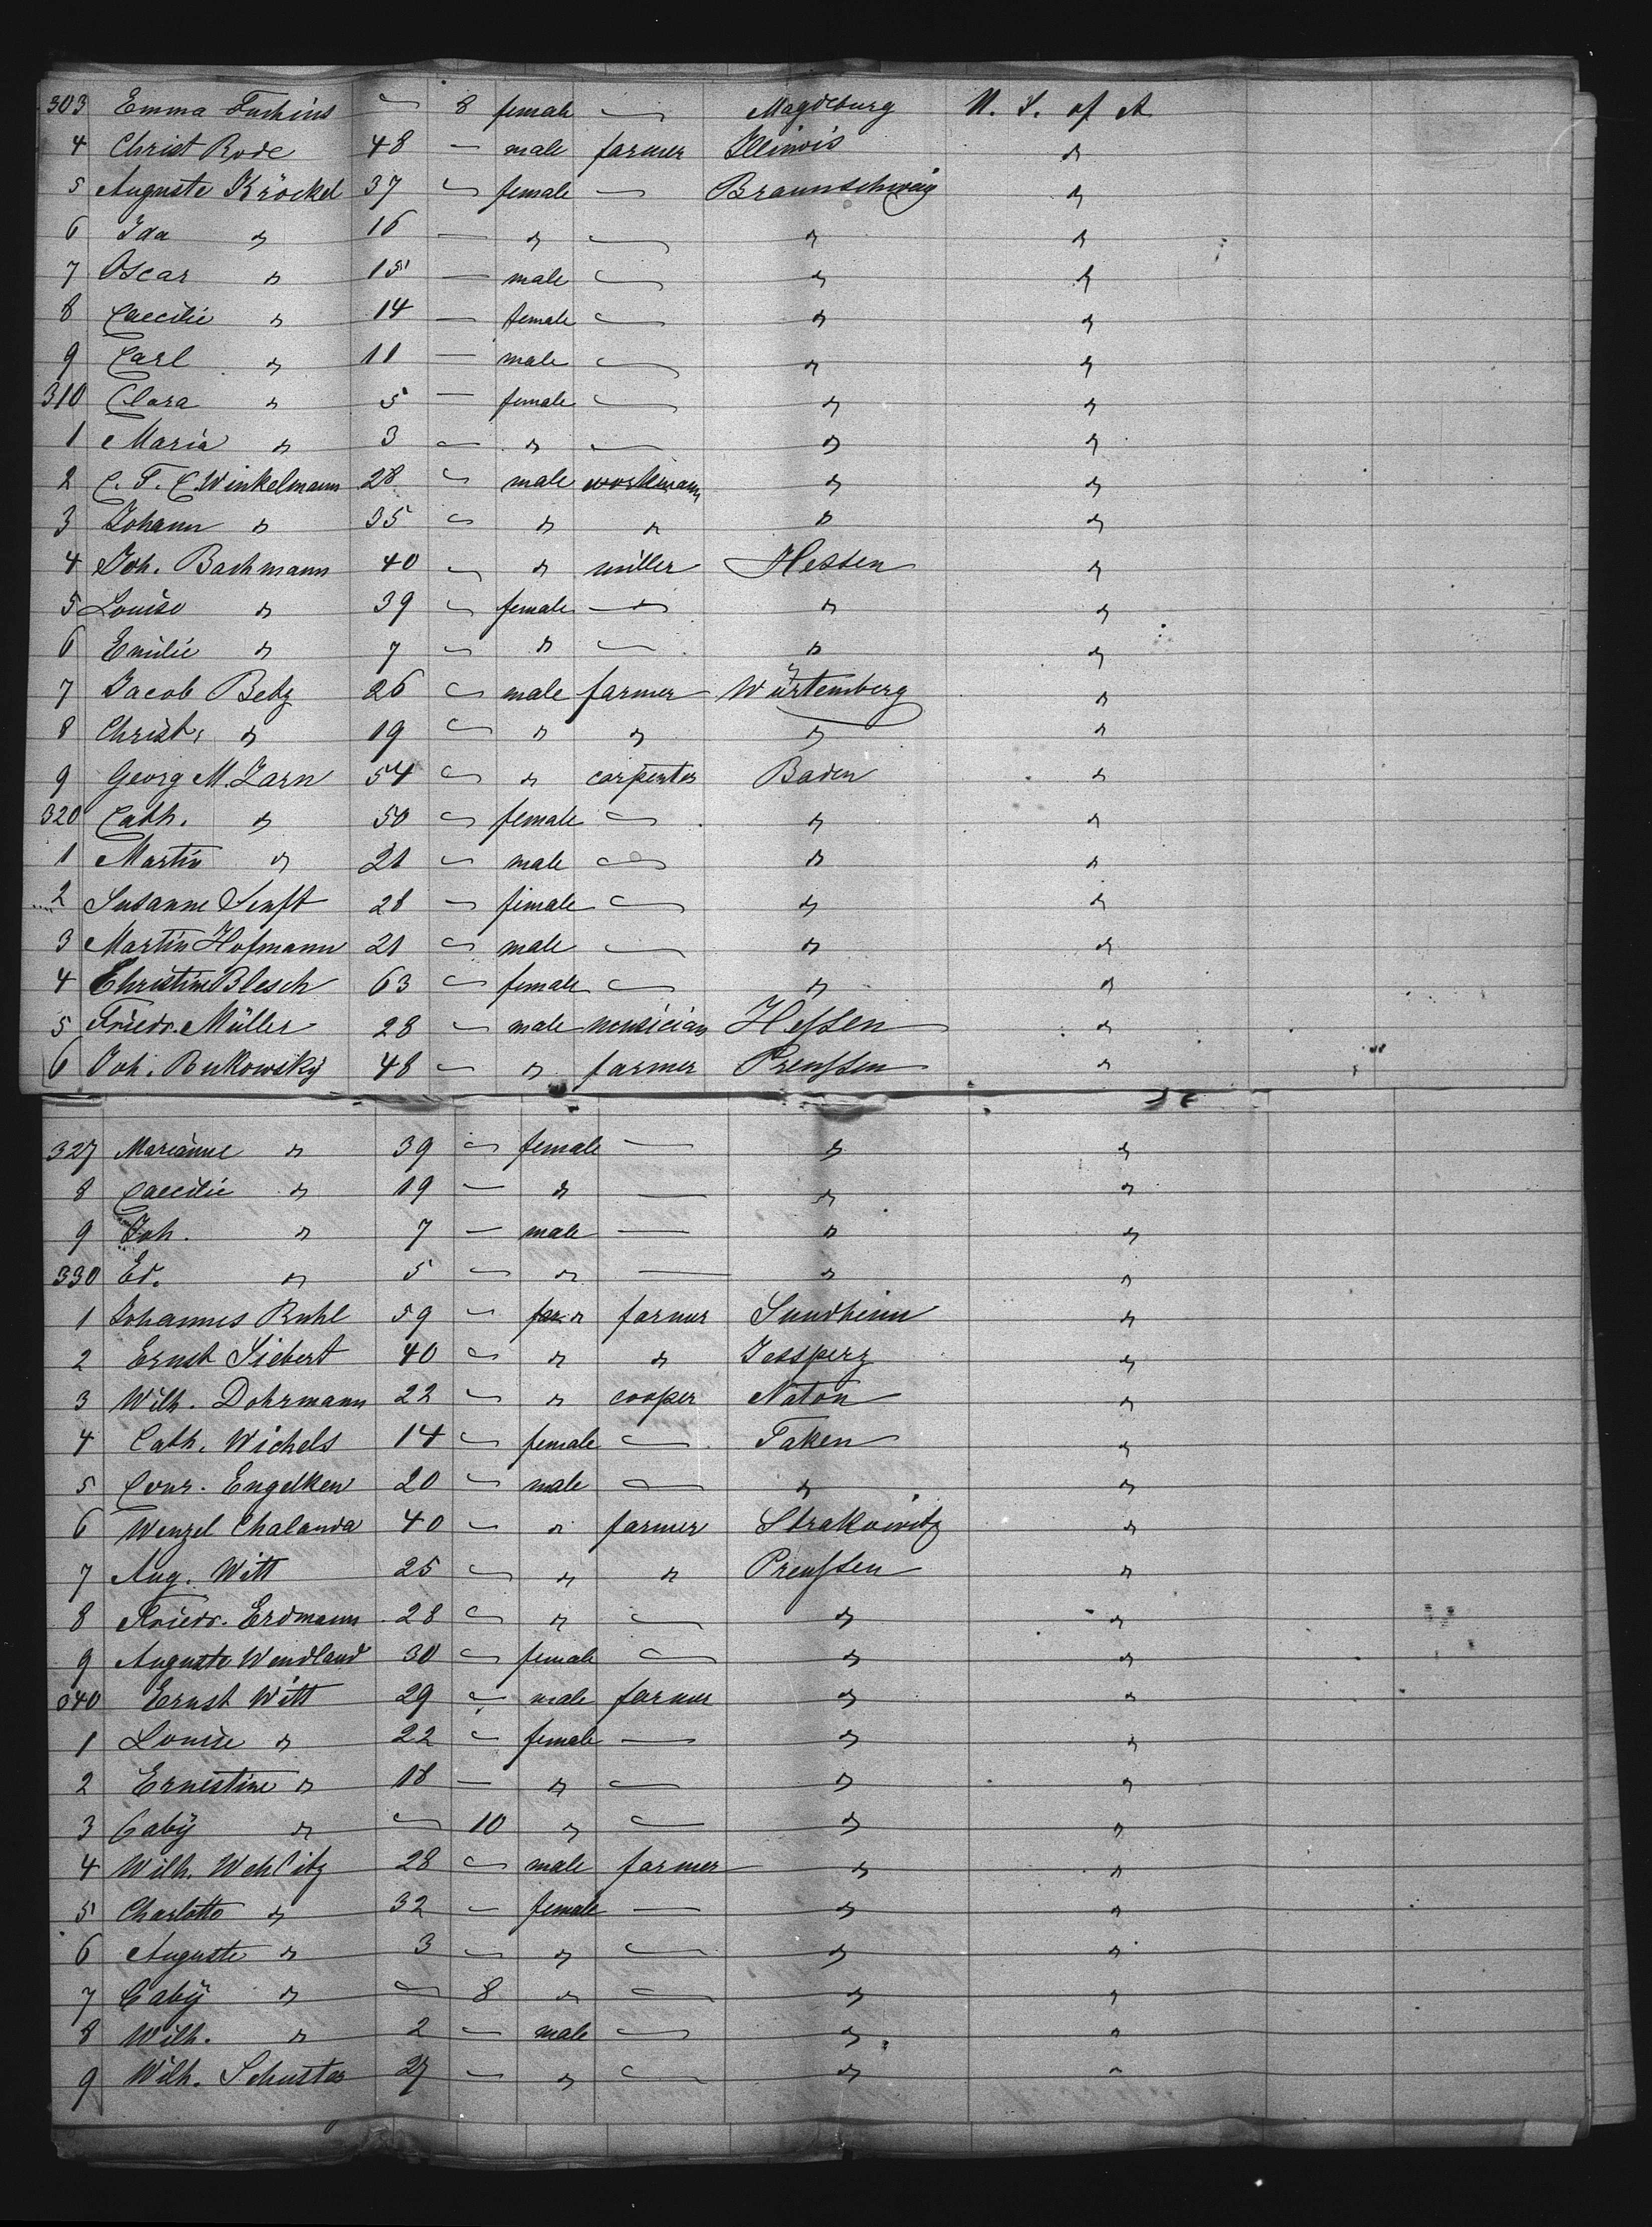 303 Emma Fuchins — 8 female — Magdeburg U. S. of A.
4 Christ Rode 48 — male farmer Illinois "
5 Auguste Kröckel 37 — female — Braunschweig "
6 Ida " 16 — " — " "
7 Oscar " 15 — male — " "
8 Caecilie " 14 — female — " "
9 Carl " 11 — male — " "
310 Clara " 5 — female — " "
1 Maria " 3 — " — " "
2 C. F. C. Winkelmann 28 — male workmann " "
3 Johann " 35 — " " " "
4 Joh. Bachmann 40 — " miller Hessen "
5 Louise " 39 — female — " "
6 Emilie " 7 — " — " "
7 Jacob Betz 26 — male farmer Würtemberg "
8 Christ. " 19 — " " " "
9 Georg M. Zarn 54 — " carpenter Baden "
320 Cath. " 50 — female — " "
1 Martin " 21 — male — " "
2 Susanne Senft 28 — female — " "
3 Martin Hofmann 21 — male — " "
4 Christine Blesch 63 — female — " "
5 Friedr. Müller 28 — male musician Hessen "
6 Joh. Bukowsky 48 — " farmer Preussen "
327 Marianne " 39 — female — " "
8 Caecilie " 19 — " — " "
9 Joh. " 7 — male — " "
330 Ed. " 5 — " — " "
1 Johannes Ruhl 59 — " farmer Sundheim "
2 Ernst Siebert 40 — " " Jessperz "
3 Wilh. Dohrmann 22 — " cooper Naton "
4 Cath. Wichels 14 — female — Taken "
5 Conr. Engelken 20 — male — " "
6 Wenzel Chalanda 40 — " farmer Strakowitz "
7 Aug. Witt 25 — " " Preussen "
8 Friedr. Erdmann 28 — " — " "
9 Auguste Wendland 30 — female — " "
340 Ernst Witt 29 — male farmer " "
1 Louise " 22 — female — " "
2 Ernestine " 18 — " — " "
3 Baby " — 10 " — " "
4 Wilh. Wehlitz 28 — male farmer " "
5 Charlotte " 32 — female — " "
6 Auguste " 3 — " — " "
7 Baby " — 8 " — " "
8 Wilh. " 2 — male — " "
9 Wilh. Schuster 27 — " — " "